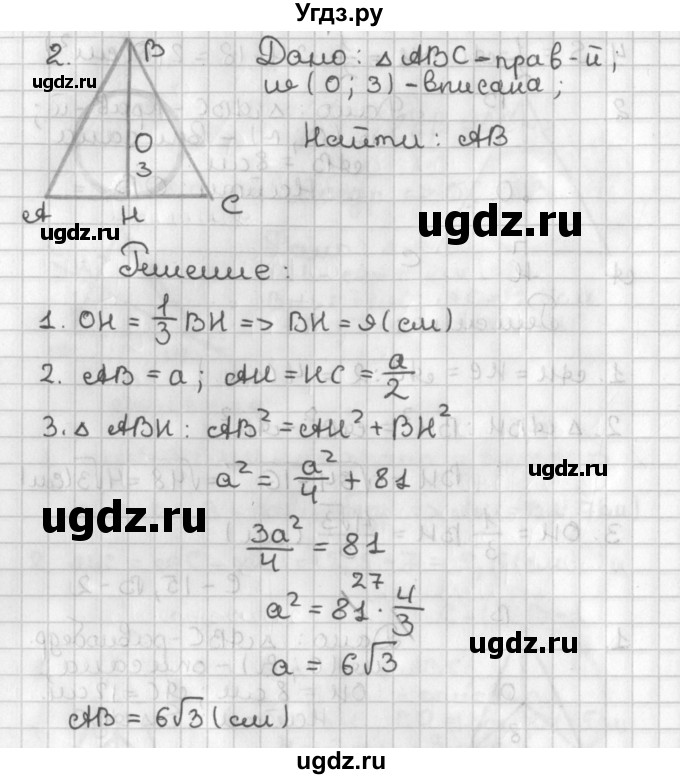 Угдз.ру
2.
B
Дано: △ ABC - прав-й;
ω (O; 3) - вписана;
ugdz.ru
O
3
Найти: AB
A H C
ugdz.ru
ugdz.ru
Решение:
1. OH = 1/3 BH => BH = 9 (см)
2. AB = a; AH = HC = a/2
3. △ ABH: AB² = AH² + BH²
a² = a²/4 + 81
ugdz.ru
ugdz.ru
3a²/4 = 81
27
a² = 81 · 4/3
ugdz.ru
a = 6√3
AB = 6√3 (см)
ugdz.ru